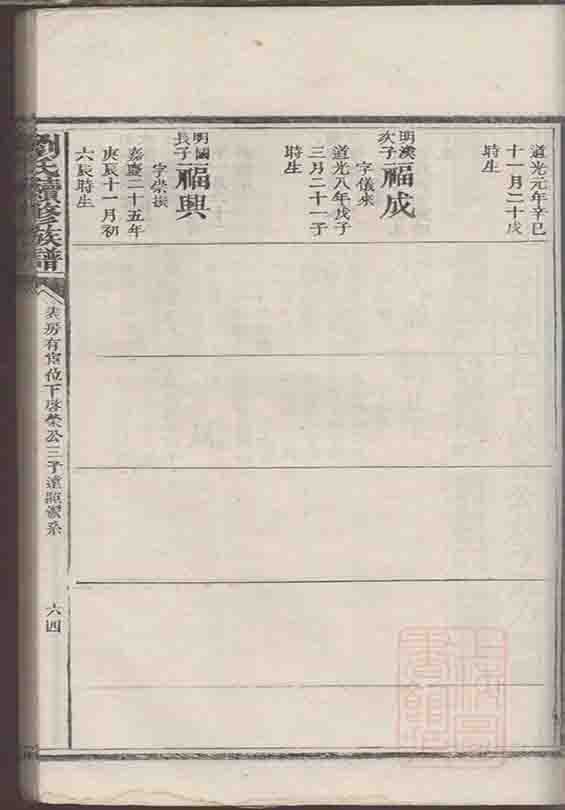 道光元年辛巳
十一月二十戌
時生
明漢
次子
福成
字儀來
道光八年戊子
三月二十一子
時生
明國
長子
福興
字榮振
嘉慶二十五年
庚辰十一月初
六辰時生
劉氏續修族譜
房有
位下啓榮公三子遠
系
六四